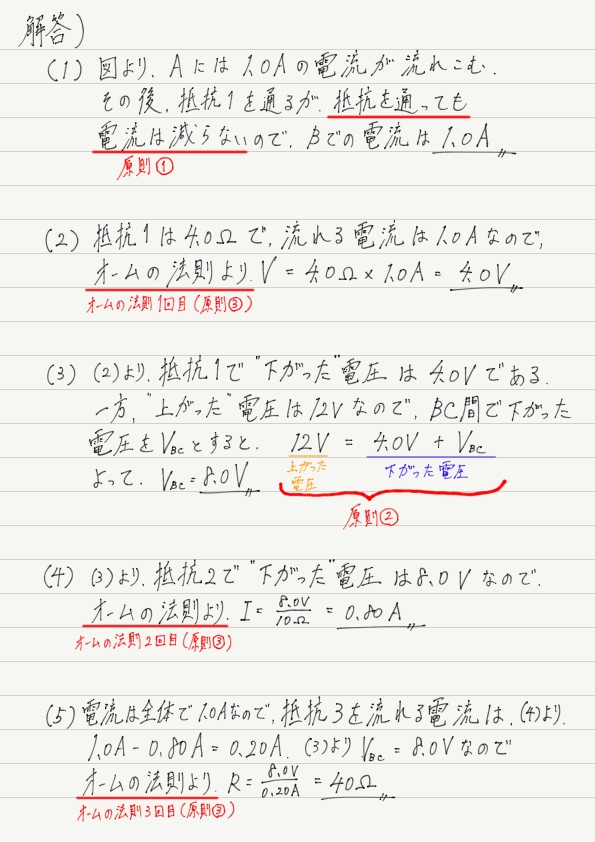 解答)
(1) 図より、Aには1.0Aの電流が流れこむ.
その後,抵抗1を通るが,抵抗を通っても
電流は減らないので,Bでの電流は1.0A
原則①
(2) 抵抗1は4.0Ωで,流れる電流は1.0Aなので,
オームの法則より.V = 4.0Ω × 1.0A = 4.0V
オームの法則1回目(原則③)
(3) (2)より.抵抗1で"下がった"電圧は4.0Vである.
一方,"上がった"電圧は12Vなので,BC間で下がった
電圧をVBCとすると. 12V = 4.0V + VBC
上がった電圧 下がった電圧
よって. VBC = 8.0V
原則②
(4) (3)より.抵抗2で"下がった"電圧は8.0Vなので.
オームの法則より. I = 8.0V/10Ω = 0.80A
オームの法則2回目(原則③)
(5) 電流は全体で1.0Aなので,抵抗3を流れる電流は,(4)より.
1.0A - 0.80A = 0.20A. (3)より VBC = 8.0Vなので
オームの法則より. R = 8.0V/0.20A = 40Ω
オームの法則3回目(原則③)